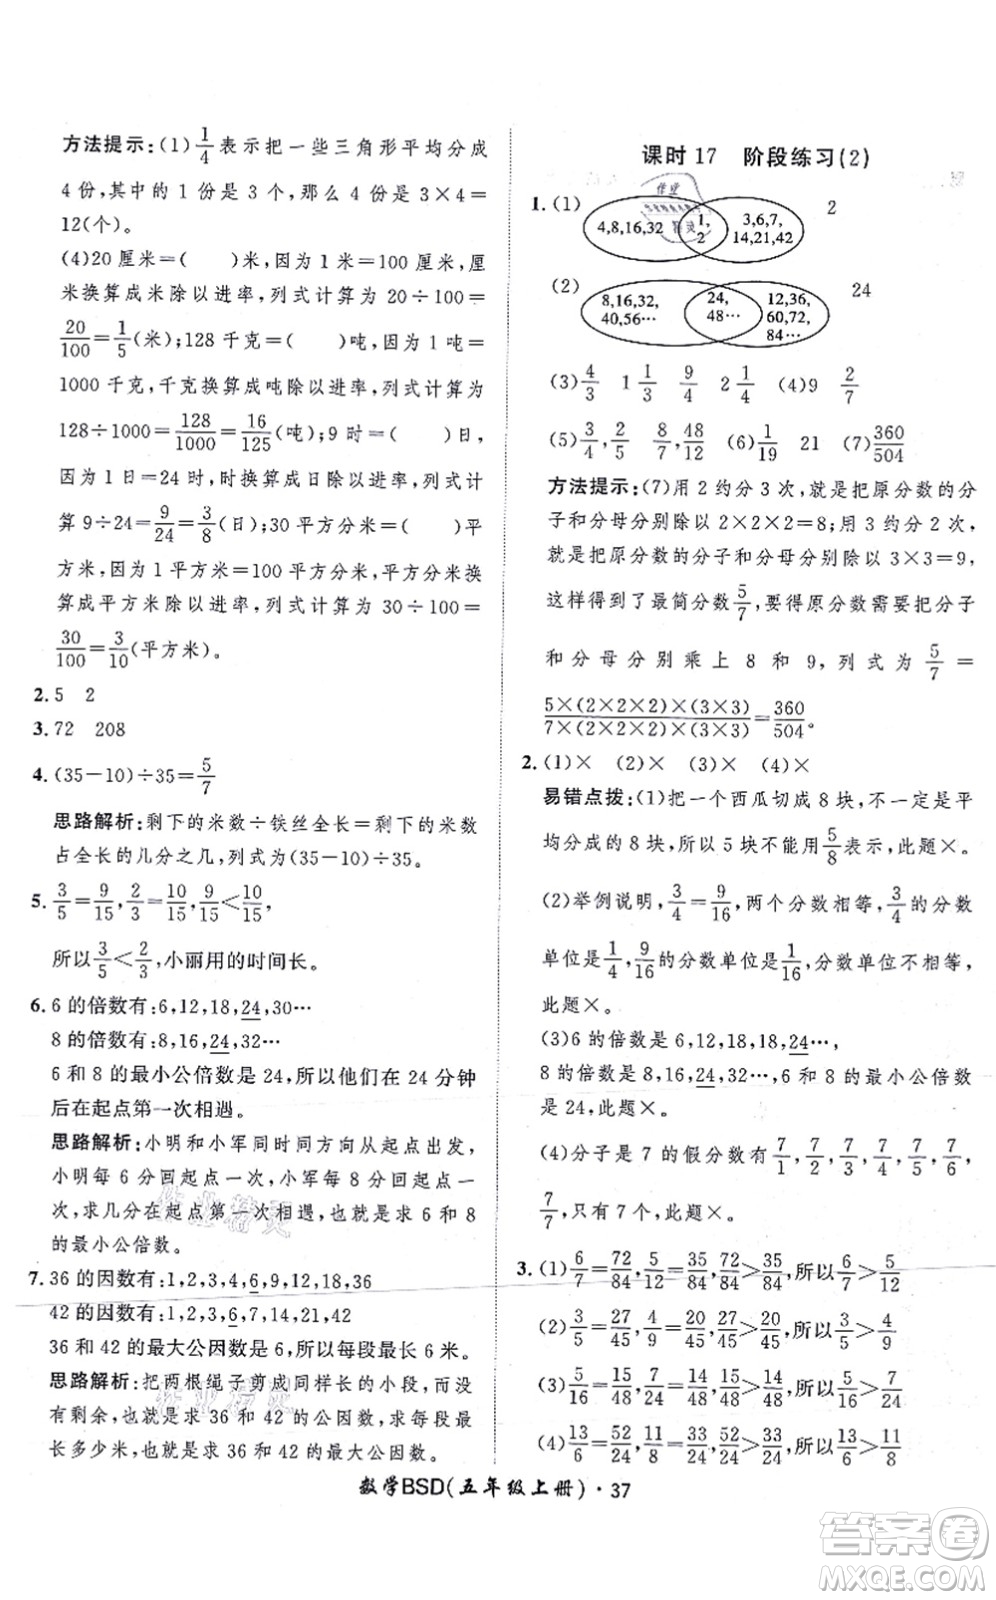 方法提示:(1)1/4表示把一些三角形平均分成
4份,其中的1份是3个,那么4份是3×4=
12(个)。
(4)20厘米=(  )米,因为1米=100厘米,厘
米换算成米除以进率,列式计算为20÷100=
20/100=1/5(米);128千克=(  )吨,因为1吨=
1000千克,千克换算成吨除以进率,列式计算为
128÷1000=128/1000=16/125(吨);9时=(  )日,
因为1日=24时,时换算成日除以进率,列式计
算9÷24=9/24=3/8(日);30平方分米=(  )平
方米,因为1平方米=100平方分米,平方分米换
算成平方米除以进率,列式计算为30÷100=
30/100=3/10(平方米)。
2.5 2
3.72 208
4.(35-10)÷35=5/7
思路解析:剩下的米数÷铁丝全长=剩下的米数
占全长的几分之几,列式为(35-10)÷35。
5.3/5=9/15,2/3=10/15,9/15<10/15,
所以3/5<2/3,小丽用的时间长。
6.6的倍数有:6,12,18,24,30…
8的倍数有:8,16,24,32…
6和8的最小公倍数是24,所以他们在24分钟
后在起点第一次相遇。
思路解析:小明和小军同时同方向从起点出发,
小明每6分回起点一次,小军每8分回起点一
次,求几分在起点第一次相遇,也就是求6和8
的最小公倍数。
7.36的因数有:1,2,3,4,6,9,12,18,36
42的因数有:1,2,3,6,7,14,21,42
36和42的最大公因数是6,所以每段最长6米。
思路解析:把两根绳子剪成同样长的小段,而没
有剩余,也就是求36和42的公因数,求每段最
长多少米,也就是求36和42的最大公因数。
课时17 阶段练习(2)
1.(1) 4,8,16,32 1,2 3,6,7,14,21,42 2
(2) 8,16,32,40,56… 24,48… 12,36,60,72,84… 24
(3)4/3 1 1/3 9/4 2 1/4 (4)9 2/7
(5)3/4,2/5 8/7,48/12 (6)1/19 21 (7)360/504
方法提示:(7)用2约分3次,就是把原分数的分
子和分母分别除以2×2×2=8;用3约分2次,
就是把原分数的分子和分母分别除以3×3=9,
这样得到了最简分数5/7,要得原分数需要把分子
和分母分别乘上8和9,列式为5/7=
5×(2×2×2)×(3×3)/7×(2×2×2)×(3×3)=360/504。
2.(1)× (2)× (3)× (4)×
易错点拨:(1)把一个西瓜切成8块,不一定是平
均分成的8块,所以5块不能用5/8表示,此题×。
(2)举例说明,3/4=9/16,两个分数相等,3/4的分数
单位是1/4,9/16的分数单位是1/16,分数单位不相等,
此题×。
(3)6的倍数有:6,12,18,18,24…
8的倍数有:8,16,24,32…,6和8的最小公倍数
是24,此题×。
(4)分子是7的假分数有7/1,7/2,7/3,7/4,7/5,7/6,
7/7,只有7个,此题×。
3.(1)6/7=72/84,5/12=35/84,72/84>35/84,所以6/7>5/12
(2)3/5=27/45,4/9=20/45,27/45>20/45,所以3/5>4/9
(3)5/16=15/48,7/24=14/48,15/48>14/48,所以5/16>7/24
(4)13/6=52/24,11/8=33/24,52/24>33/24,所以13/6>11/8
数学BSD(五年级上册)·37
答案卷
MXQE.COM